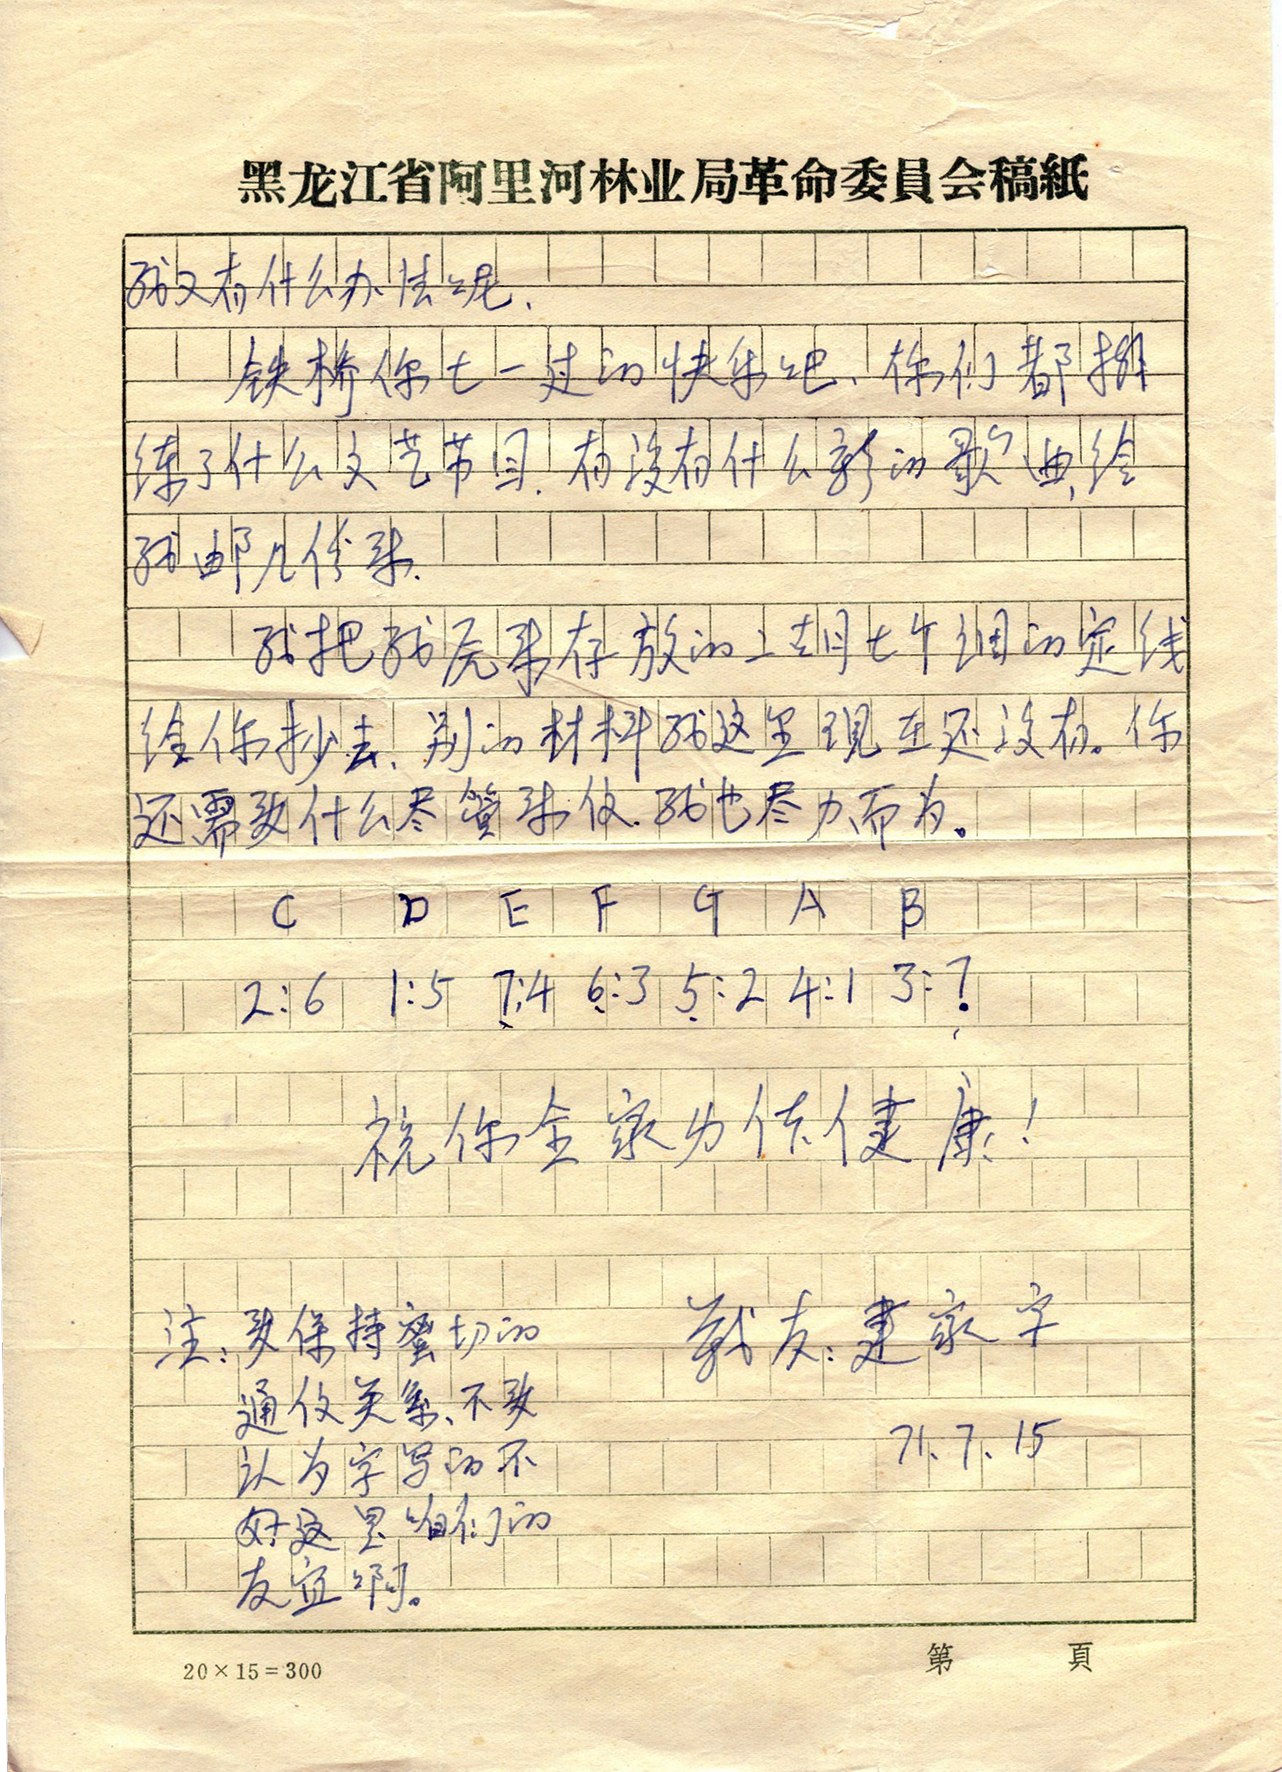 黑龙江省阿里河林业局革命委員会稿紙
我又有什么办法呢、
铁桥你七一过的快乐吧、你们都排
练了什么文艺节目、有没有什么新的歌曲,给
我邮几份来.
我把我原来存放的上胡七个调的定线
给你抄去、别的材料我这里现在还没有。你
还需要什么尽管来信.我也尽力而为。
C D E F G A B
2:6 1:5 7:4 6:3 5:2 4:1 3:7
祝你全家身体健康!
注:要保持密切的
通信关系、不要
认为字写的不
好这里咱们的
友宜啊。
战友:建家字
71、7、15
20×15=300
第 頁